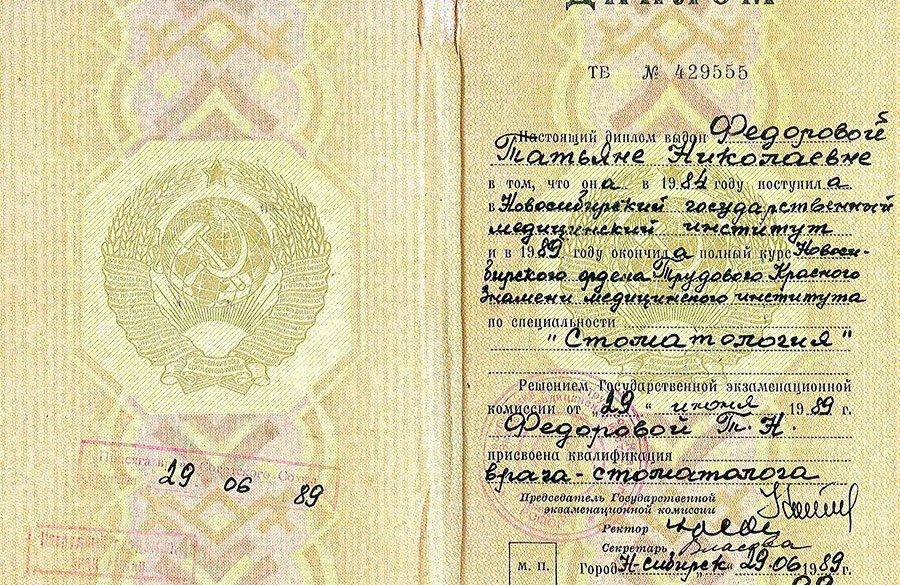 ДИПЛОМ
ТВ № 429555
Настоящий диплом выдан Федоровой
Татьяне Николаевне
в том, что она в 1984 году поступила
в Новосибирский государственный
медицинский институт
и в 1989 году окончила полный курс Новоси-
бирского ордена Трудового Красного
Знамени медицинского института
по специальности
"Стоматология"
Решением Государственной экзаменационной
комиссии от „29“ июня 1989 г.
Федоровой Т. Н.
присвоена квалификация
врача-стоматолога
Председатель Государственной
экзаменационной комиссии
Ректор
Секретарь Власова
М. П.
Город Н-сибирск 29.06 1989 г.
Советского Со
29 06 89